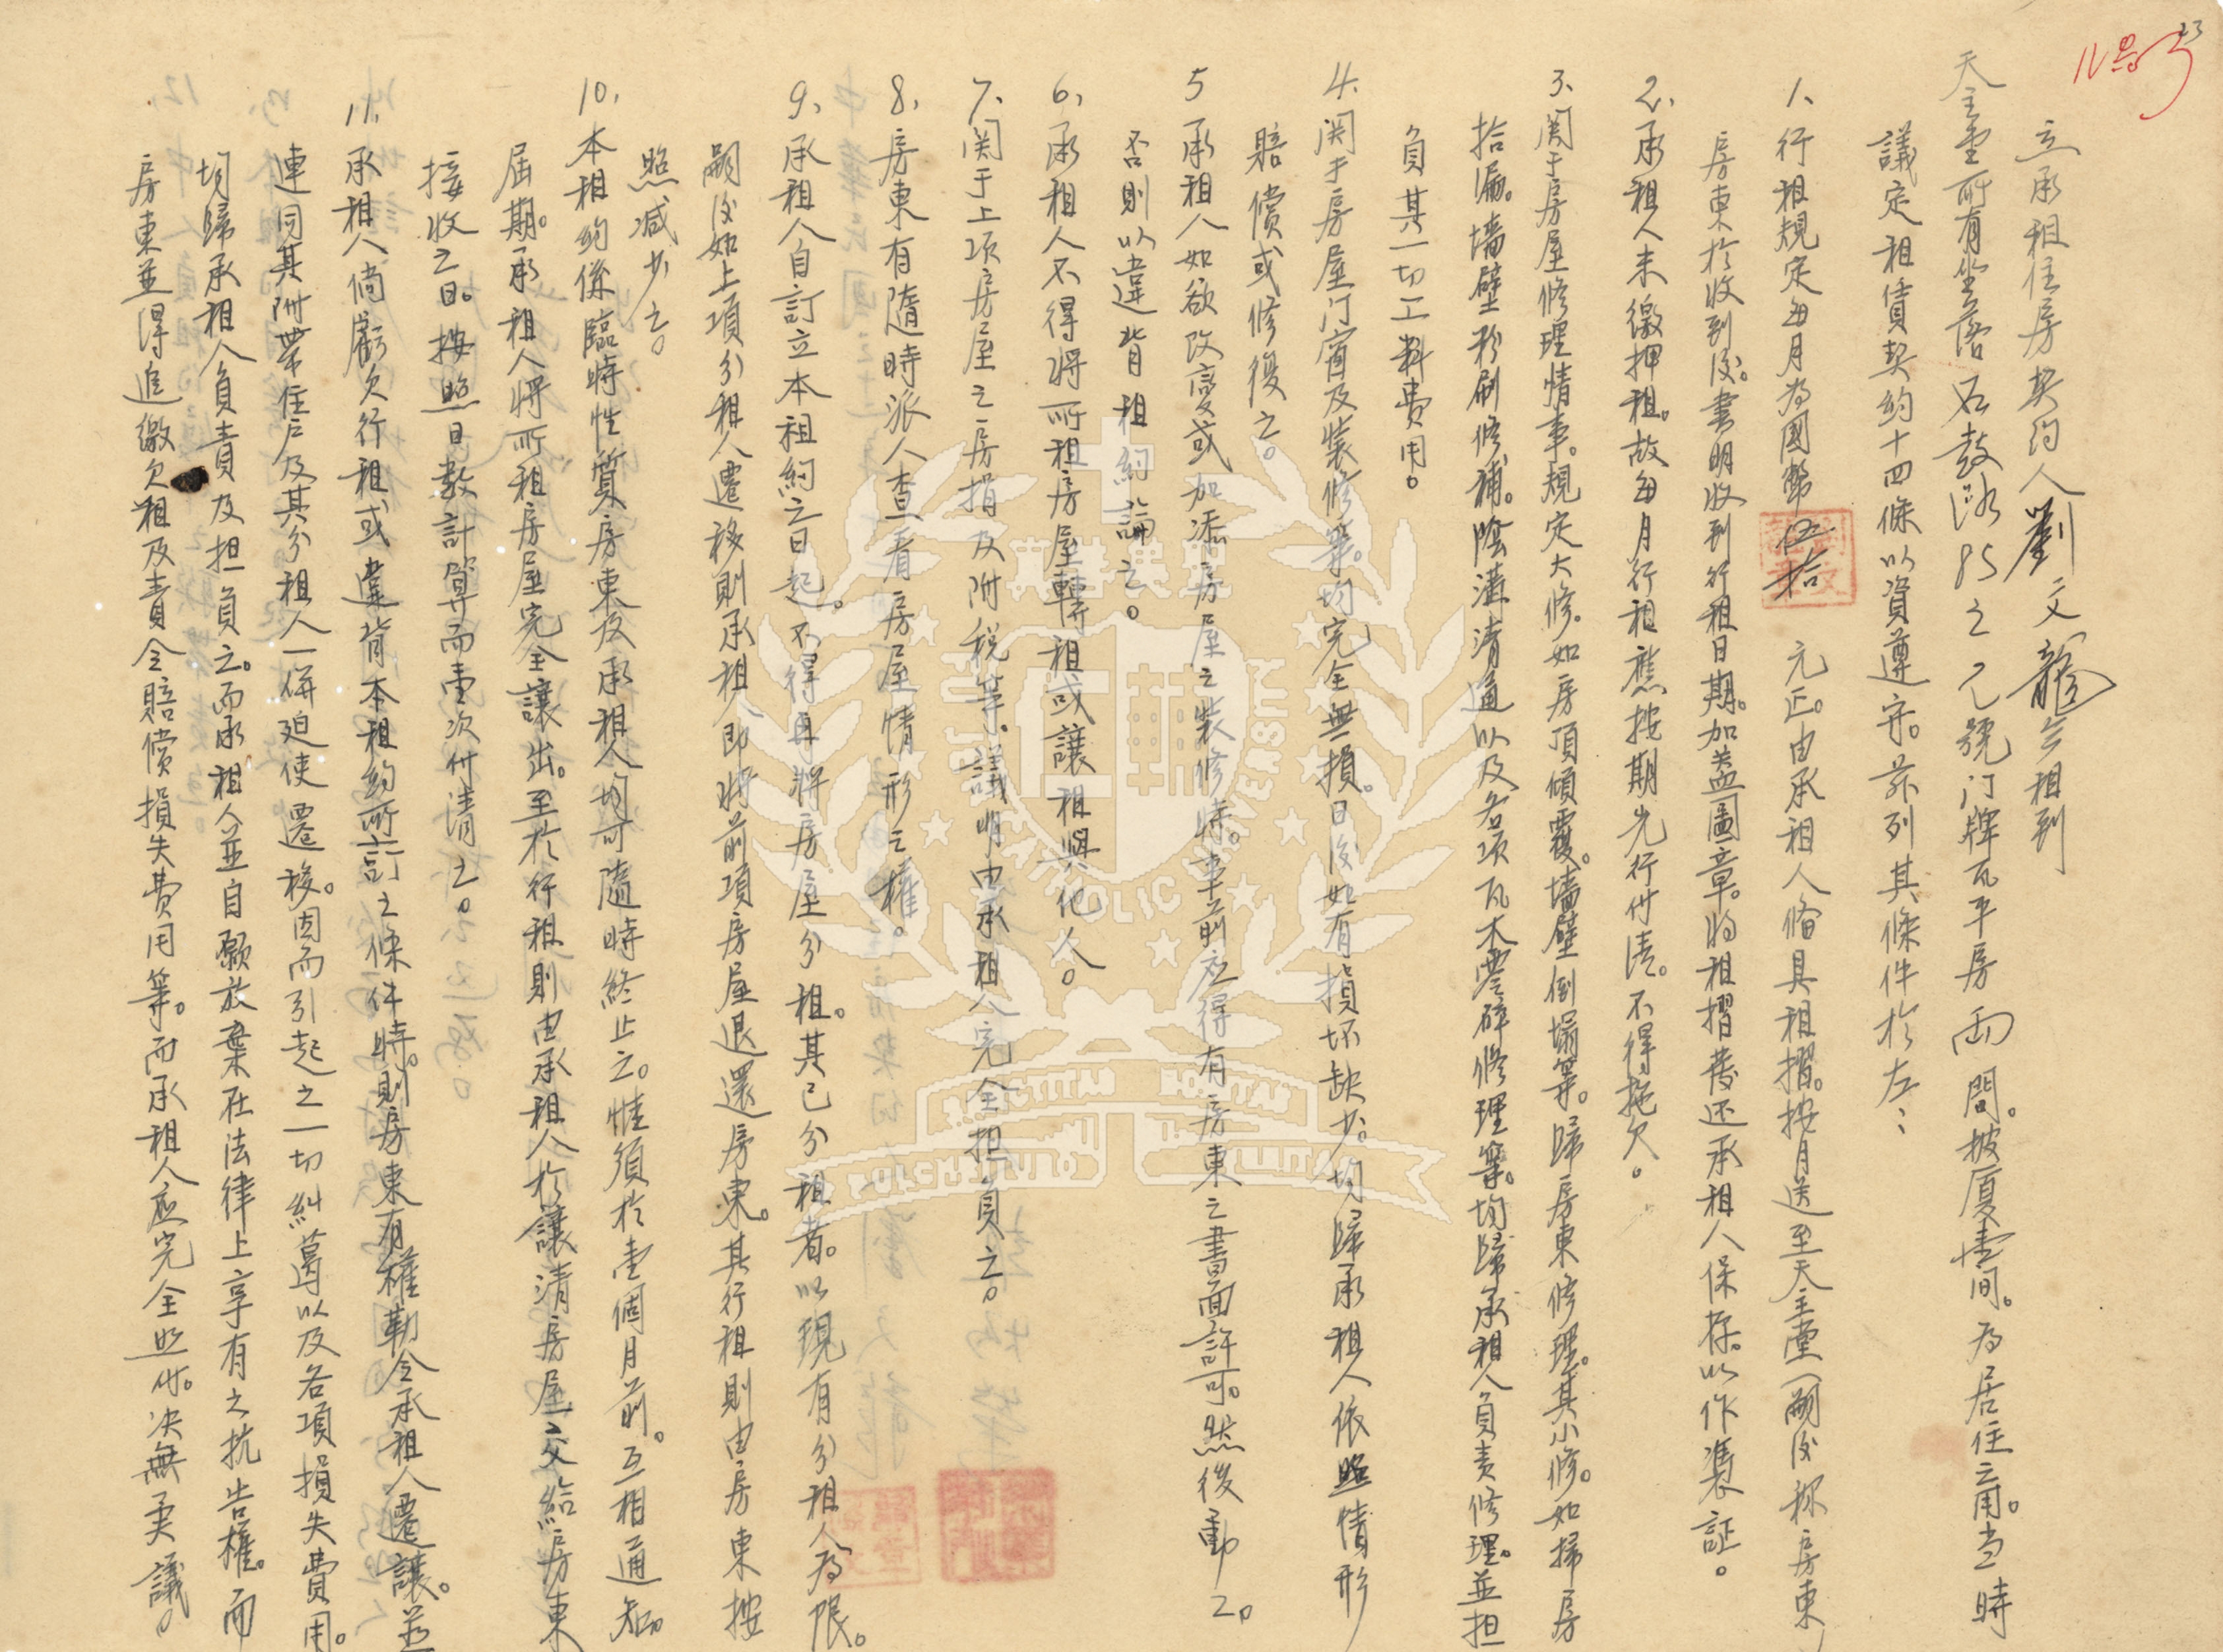 12号
立承租住房契约人劉文龍今租到
天主堂所有坐落石鼓路85之乙號门牌瓦平房兩間。披厦壹间。为居住之用。当時
議定租賃契約十四條以資遵守。茲列其條件於左：
1、行租規定每月为國幣伍拾元正。由承租人俻具租摺。按月送至天主堂（嗣後称房東）
房東於收到後。書明收到行租日期。加盖圖章。將租摺發还承租人保存。以作憑証。
2、承租人未繳押租。故每月行租應按期先行付清。不得拖欠。
3、関于房屋修理情事。規定大修。如房頂傾覆。墙壁倒塌等。歸房東修理。其小修。如掃房
拾漏。墙壁粉刷修補。陰溝清通以及各項瓦木零碎修理等。均歸承租人負責修理。並担
負其一切工料費用。
4、関于房屋门窗及裝修等。均完全無損。日後如有損坏缺少。均歸承租人依照情形
賠償或修復之。
5 承租人如欲改變或加添房屋之裝修時。事前应得有房東之書面許可。然後動工。
否則以違背租約論之。
6、承租人不得將所租房屋轉租或讓租與他人。
7、関于上項房屋之房捐及附税等。議明由承租人完全担負之。
8、房東有隨時派人查看房屋情形之權。
9、承租人自訂立本租約之日起。不得再將房屋分租。其已分租者。以現有分租人為限。
嗣後如上項分租人遷移則承租人即將前項房屋退還房東。其行租則由房東按
照減少之。
10、本租約係臨時性質房東及承租人均可隨時終止之。惟須於壹個月前。互相通知。
届期。承租人將所租房屋完全讓出。至於行租則由承租人於讓清房屋交給房東
接收之日。按照日數計算而壹次付清之。
11、承租人倘虧欠行租或違背本租約所訂之條件時。則房東有權勒令承租人遷讓。並
連同其附帶住戶及其分租人一併廹使遷移。因而引起之一切糾葛以及各項損失費用。
均歸承租人負責及担負之。而承租人並自願放棄在法律上享有之抗告權。而
房東並得追繳欠租及責令賠償損失費用等。而承租人应完全照付。决無異議。